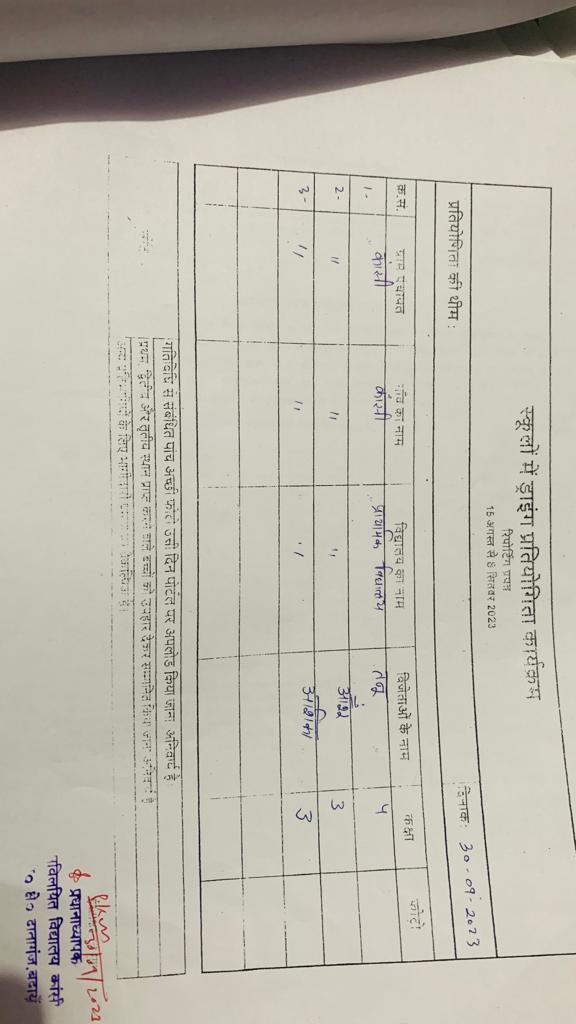 स्कूलों में ड्राइंग प्रतियोगिता कार्यक्रम
रिपोर्टिंग प्रपत्र
15 अगस्त से 8 सितंबर 2023
प्रतियोगिता की थीम : दिनांक: 30-09-2023
क्र.सं. ग्राम पंचायत गाँव का नाम विद्यालय का नाम विजेताओं के नाम कक्षा फोटो
1- कांसी कांसी प्राथमिक विद्यालय
2- " " " अंश 3
3- " " " अंशिका 3
गतिविधि से संबंधित पांच अच्छी फोटो उसी दिन पोर्टल पर अपलोड किया जाना अनिवार्य है
प्रथम, द्वितीय और तृतीय स्थान प्राप्त करने वाले बच्चों को उपहार देकर सम्मानित किया जाना
के लिए
30/09/2023
प्रधानाध्यापक
संविलियित विद्यालय कांसी
दातागंज, बदायूँ